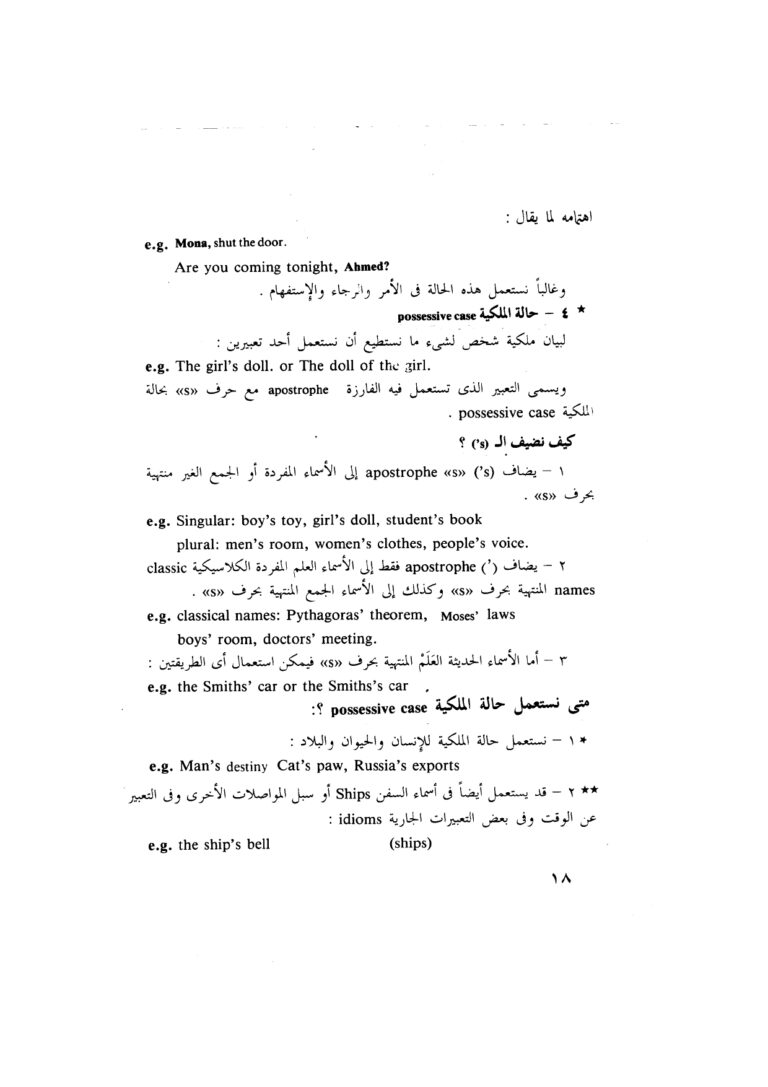 اهتمامه لما يقال :
e.g. Mona, shut the door.
Are you coming tonight, Ahmed?
وغالباً نستعمل هذه الحالة فى الأمر والرجاء والإستفهام .
* ٤ – حالة الملكية possessive case
لبيان ملكية شخص لشىء ما نستطيع أن نستعمل أحد تعبيرين :
e.g. The girl's doll. or The doll of the girl.
ويسمى التعبير الذى تستعمل فيه الفارزة apostrophe مع حرف «s» بحالة
الملكية possessive case .
كيف نضيف الـ (s') ؟
١ – يضاف (s') «s» apostrophe إلى الأسماء المفردة أو الجمع الغير منتهية
بحرف «s» .
e.g. Singular: boy's toy, girl's doll, student's book
plural: men's room, women's clothes, people's voice.
٢ – يضاف (') apostrophe فقط إلى الأسماء العلم المفردة الكلاسيكية classic
names المنتهية بحرف «s» وكذلك إلى الأسماء الجمع المنتهية بحرف «s» .
e.g. classical names: Pythagoras' theorem, Moses' laws
boys' room, doctors' meeting.
٣ – أما الأسماء الحديثة العَلَمْ المنتهية بحرف «s» فيمكن استعمال أى الطريقتين :
e.g. the Smiths' car or the Smiths's car .
متى نستعمل حالة الملكية possessive case ؟:
* ١ – نستعمل حالة الملكية للإنسان والحيوان والبلاد :
e.g. Man's destiny Cat's paw, Russia's exports
** ٢ – قد يستعمل أيضاً فى أسماء السفن Ships أو سبل المواصلات الأخرى وفى التعبير
عن الوقت وفى بعض التعبيرات الجارية idioms :
e.g. the ship's bell (ships)
١٨